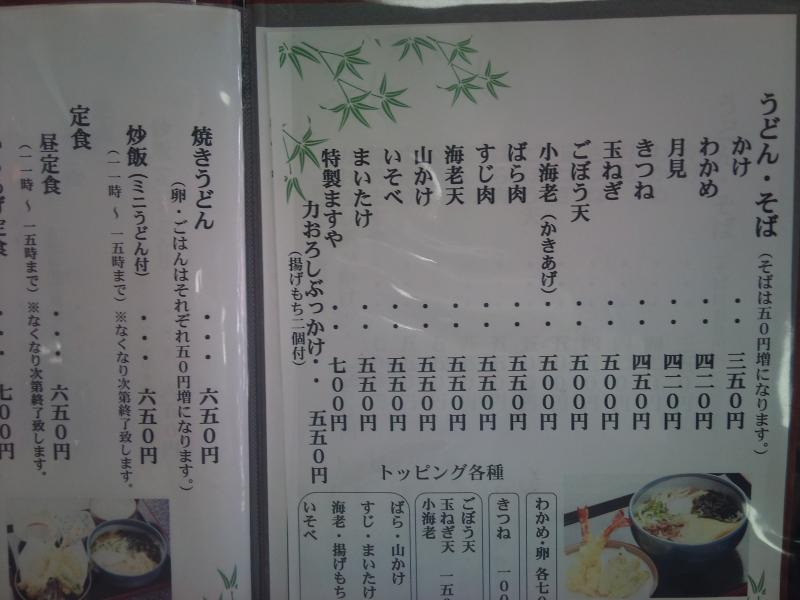 うどん・そば（そばは五０円増になります。）
かけ・・三五０円
わかめ・・四二０円
月見・・四二０円
きつね・・四五０円
玉ねぎ・・五００円
ごぼう天・・五００円
小海老（かきあげ）・・五００円
ばら肉・・五五０円
すじ肉・・五五０円
海老天・・五五０円
山かけ・・五五０円
いそべ・・五五０円
まいたけ・・五五０円
特製ますや・・七００円
力おろしぶっかけ・・五五０円
（揚げもち二個付）
トッピング各種
わかめ・卵 各七０
きつね 一００
ごぼう天
玉ねぎ天 一五
小海老
ばら・山かけ
すじ・まいたけ
海老・揚げもち
いそべ
焼きうどん・・・六五０円
（卵・ごはんはそれぞれ五０円増になります。）
炒飯（ミニうどん付）・・・六五０円
（一一時～一五時まで）※なくなり次第終了致します。
定食
昼定食・・・六五０円
（一一時～一五時まで）※なくなり次第終了致します。
定食・・・七００円